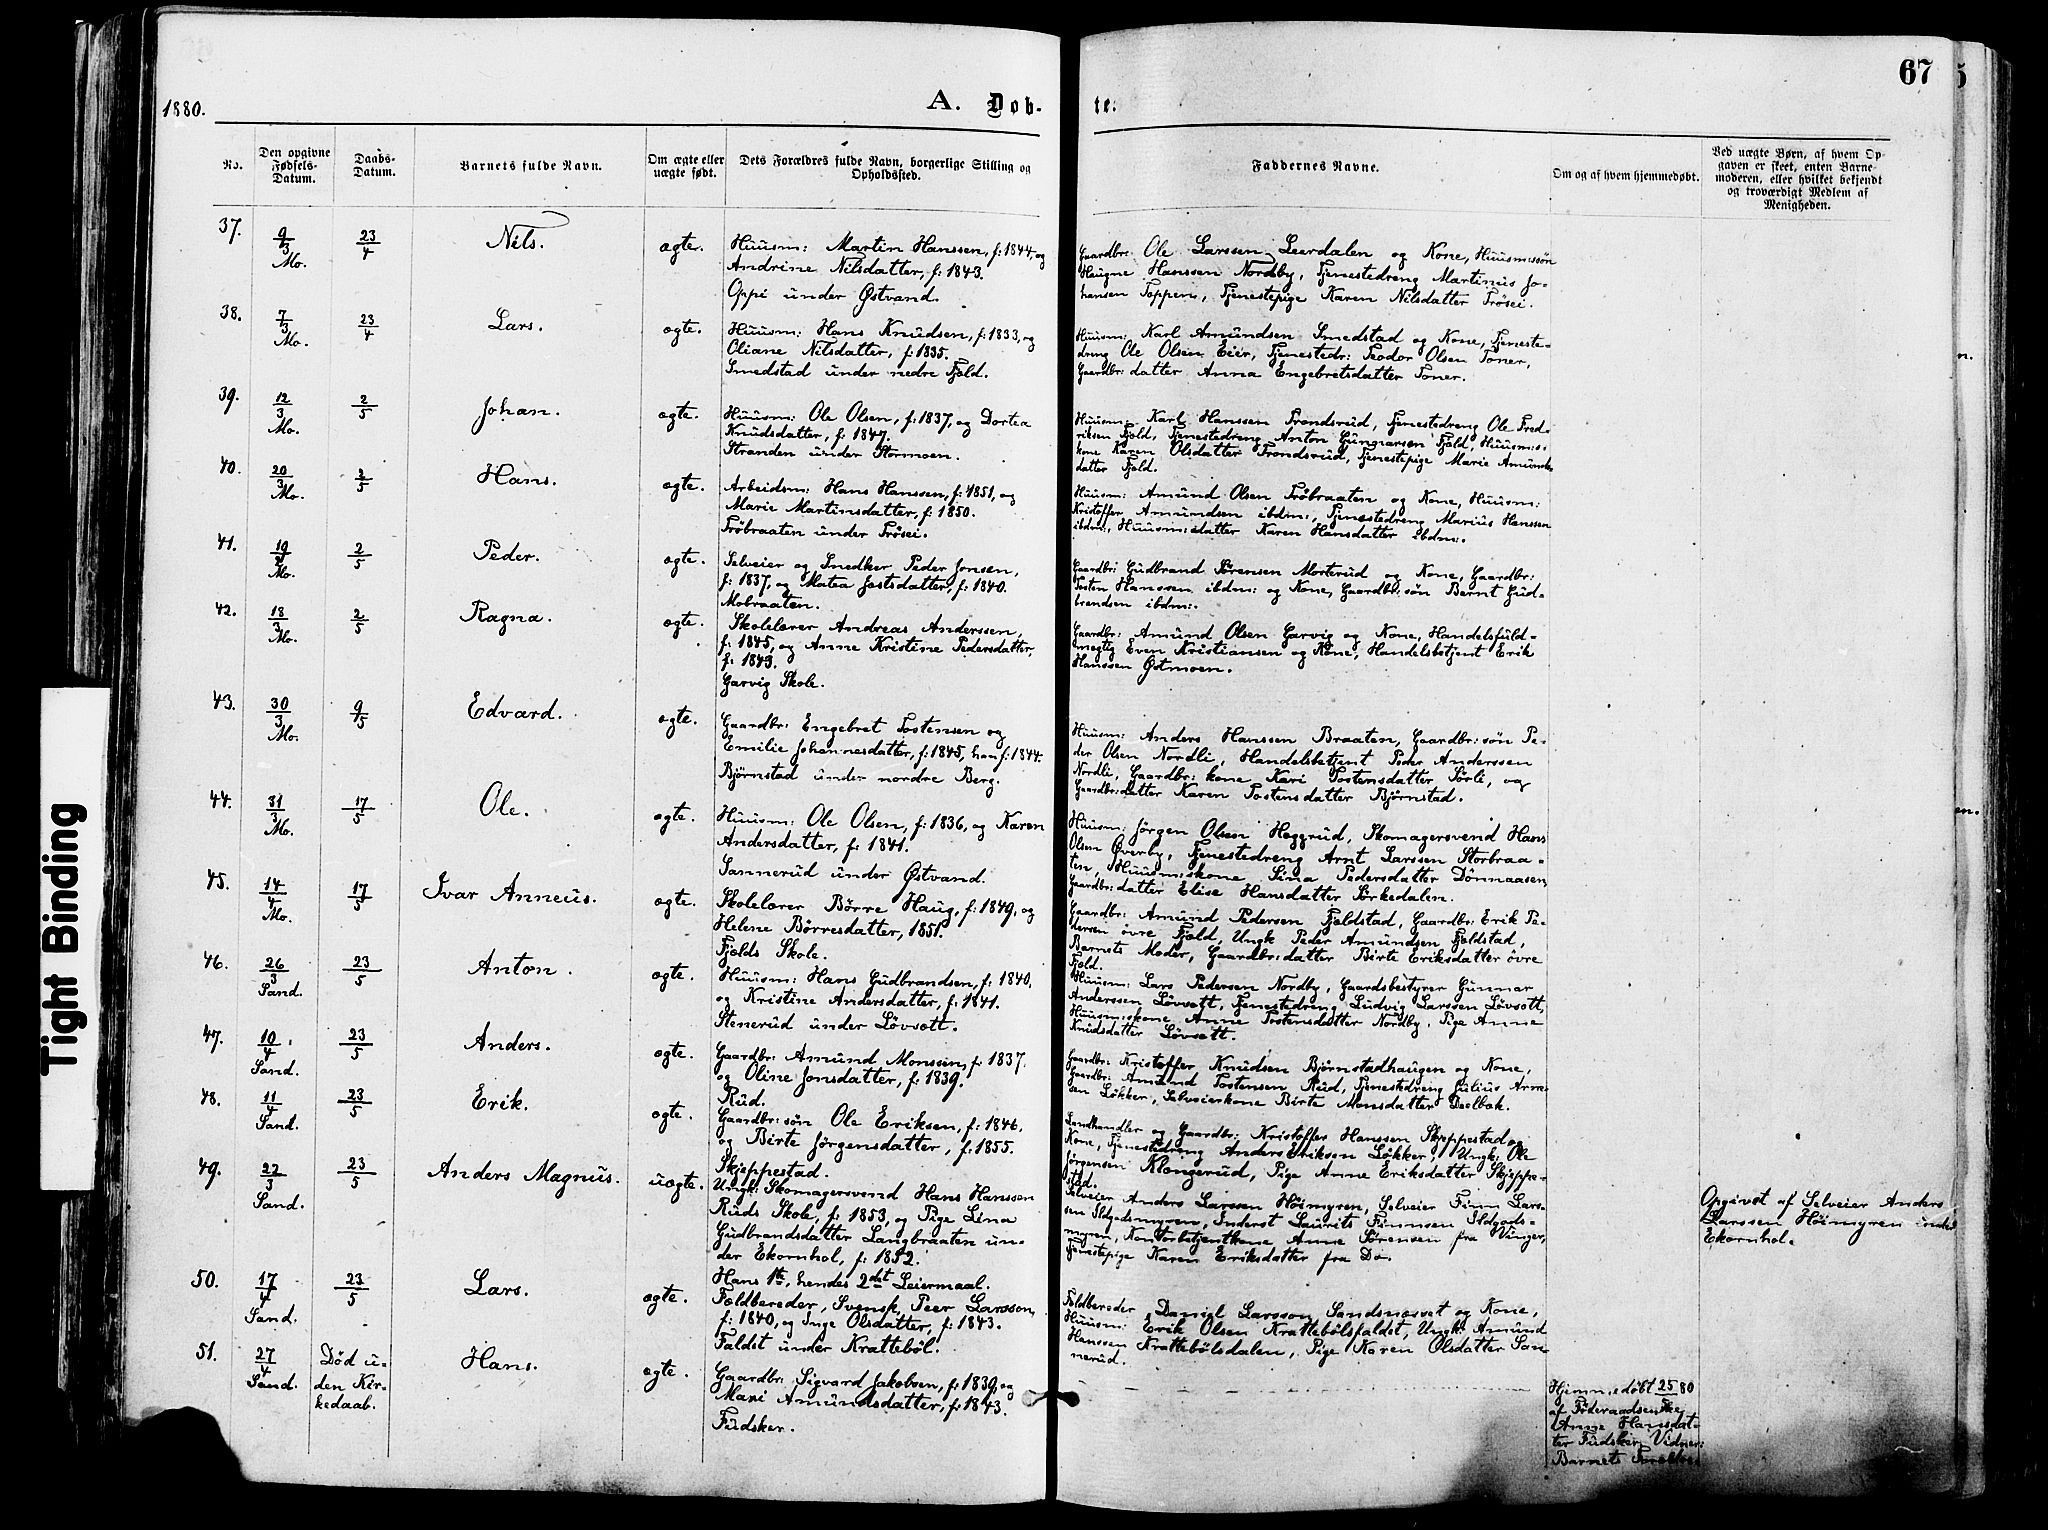 1880.
A. Døb-
te.
67
No.
Den opgivne
Fødsels-
Datum.
Daabs-
Datum.
Barnets fulde Navn.
Om ægte eller
uægte født.
Dets Forældres fulde Navn, borgerlige Stilling og
Opholdssted.
Faddernes Navne.
Om og af hvem hjemmedøbt.
Ved uægte Børn, af hvem Op-
gaven er skeet, enten Barne-
moderen, eller hvilket bekjendt
og troværdigt Medlem af
Menigheden.
37. 9/3 Mo. 23/4 Nils. ægte.
Huusm: Martin Hanssen, f: 1844, og
Andrine Nilsdatter, f: 1843.
Oppi under Østvand.
Gaardbr: Ole Larssen Leerdalen og Kone, Huusm:søn
Haugne Hanssen Nordby, Tjenestedreng Martinus Jo-
hansen Toppen, Tjenestepige Karen Nilsdatter Trøsei.
38. 7/3 Mo. 23/4 Lars. ægte.
Huusm: Hans Knudsen, f: 1833, og
Oliane Nilsdatter, f: 1835.
Smedstad under nedre Fjeld.
Huusm: Karl Amundsen Smedstad og Kone, Tjeneste-
dreng Ole Olsen Eier, Tjenestedr: Teodor Olsen Toner,
Gaardbr:datter Anna Engebretsdatter Toner.
39. 12/3 Mo. 2/5 Johan. ægte.
Huusm: Ole Olsen, f: 1837, og Dortea
Knudsdatter, f: 1847.
Stranden under Stormoen.
Huusm: Karl Hanssen Trondsrud, Tjenestedreng Ole Fred-
riksen Fjeld, Tjenestedreng Anton Gunnarsen Fjeld, Huusm:s-
kone Karen Olsdatter Trondsrud, Tjenestepige Marie Amunds-
datter Fjeld.
40. 20/3 Mo. 2/5 Hans. ægte.
Arbeidsm: Hans Hanssen, f: 1851, og
Marie Martinsdatter, f: 1850.
Trøbraaten under Trøsei.
Huusm: Amund Olsen Trøbraaten og Kone, Huusm:
Kristoffer Amundsen ibdm:, Tjenestedreng Marius Hanssen
ibdm:, Huusm:datter Karen Hansdatter ibdm:.
41. 19/2 Mo. 2/5 Peder. ægte.
Selveier og Snedker Peder Jonsen,
f: 1837, og Matea Jostsdatter, f: 1840.
Mobraaten.
Gaardbr: Gudbrand Sørensen Morterud og Kone, Gaardbr:
Tosten Hanssen ibdm: og Kone, Gaardbr:søn Bernt Gud-
brandsen ibdm:.
42. 18/3 Mo. 2/5 Ragna. ægte.
Skolelærer Andreas Anderssen,
f: 1845, og Anne Kristine Pedersdatter,
f: 1849.
Garvig Skole.
Gaardbr: Amund Olsen Garvig og Kone, Handelsfuld-
mægtig Even Kristiansen og Kone, Handelsbetjent Erik
Hanssen Østmoen.
43. 30/3 Mo. 9/5 Edvard. ægte.
Gaardbr: Engebret Tostensen og
Emilie Johannesdatter, f: 1845, han f: 1844.
Bjørnstad under nordre Berg.
Huusm: Anders Hanssen Braaten, Gaardbr:søn Pe-
der Olsen Nordli, Handelsbetjent Peder Anderssen
Nordli, Gaardbr:kone Kari Tostensdatter Sørli, og
Gaardbr:datter Karen Tostensdatter Bjørnstad.
44. 31/3 Mo. 17/5 Ole. ægte.
Huusm: Ole Olsen, f: 1836, og Karen
Andersdatter, f: 1841.
Sannerud under Østvand.
Huusm: Jørgen Olsen Heggrud, Skomagersvend Hans
Olsen Øverby, Tjenestedreng Arnt Larssen Storbraa-
ten, Huusm:skone Lina Pedersdatter Dønnaasen,
Gaardbr:datter Elise Hansdatter Sørkedalen.
45. 14/4 Mo. 17/5 Ivar Anneus. ægte.
Skolelærer Børre Haug, f: 1849, og
Helene Børresdatter, 1851.
Fjelds Skole.
Gaardbr: Amund Pedersen Fjeldstad, Gaardbr: Erik Pe-
dersen øvre Fjeld, Ungk. Peder Amundsen Fjeldstad,
Barnets Moder, Gaardbr:datter Birte Eriksdatter øvre
Fjeld.
46. 26/3 Sand. 23/5 Anton. ægte.
Huusm: Hans Gudbrandsen, f: 1840,
og Kristine Andersdatter, f: 1841.
Stenerud under Løvsett.
Huusm: Lars Pedersen Nordby, Gaardsbestyrer Gunnar
Anderssen Løvsett, Tjenestedreng Ludvig Larssen Løvsett,
Huusm:skone Anne Tostensdatter Nordby, Pige Anne
Knudsdatter Løvsett.
47. 10/4 Sand. 23/5 Anders. ægte.
Gaardbr: Amund Monssen, f: 1837.
og Oline Jonsdatter, f: 1839.
Rud.
Gaardbr: Kristoffer Knudsen Bjørnstadhaugen og Kone,
Gaardbr: Amund Tostensen Rud, Tjenestedreng Julius Arne-
sen Løkker, Selveierkone Birte Monsdatter Deelbæk.
48. 11/4 Sand. 23/5 Erik. ægte.
Gaardbr:søn Ole Eriksen, f: 1846,
og Birte Jørgensdatter, f: 1855.
Skjeppestad.
Landhandler og Gaardbr: Kristoffer Hanssen Skjeppestad og
Kone, Tjenestedreng Anders Eriksen Løkker, Ungk: Ole
Jørgensen Klongerud, Pige Anne Eriksdatter Skjeppe-
stad.
49. 22/3 Sand. 23/5 Anders Magnus. uægte.
Ungk: Skomagersvend Hans Hanssen
Ruds Skole, f: 1853, og Pige Lina
Gudbrandsdatter Langbraaten un-
der Ekornhol, f: 1852.
Hans 1ste, hendes 2det Leiermaal.
Selveier Anders Larssen Høimyren, Selveier Finn Lars-
sen Ildgodsmyren, Inderst Laurits Finnsen Ildgods-
myren, Kontorbetjentkone Anne Sørensen fra Vinger,
Tjenestepige Karen Eriksdatter fra Do.
Opgivet af Selveier Anders
Larssen Høimyren under
Ekornhol.
50. 17/4 Sand. 23/5 Lars. ægte.
Fældbereder, Svensk, Peer Larsson,
f: 1840, og Inge Olsdatter, f: 1843.
Faldet under Krattebøl.
Fældbereder Daniel Larsson Sandsnæsvet og Kone,
Huusm: Erik Olsen Krattebølsfaldet, Ungk: Amund
Hanssen Krattebølsdalen, Pige Karen Olsdatter San-
nerud.
51. 27/4 Sand. Død u-
den Kir-
kedaab. Hans. ægte.
Gaardbr: Sigvard Jakobsen, f: 1839, og
Mari Amundsdatter, f: 1843.
Fudsker.
Hjemmedøbt 25/5 80
af Føderaadsenke
Anne Hansdat-
ter Fudsker. Vidner:
Barnets Forældre
Tight Binding